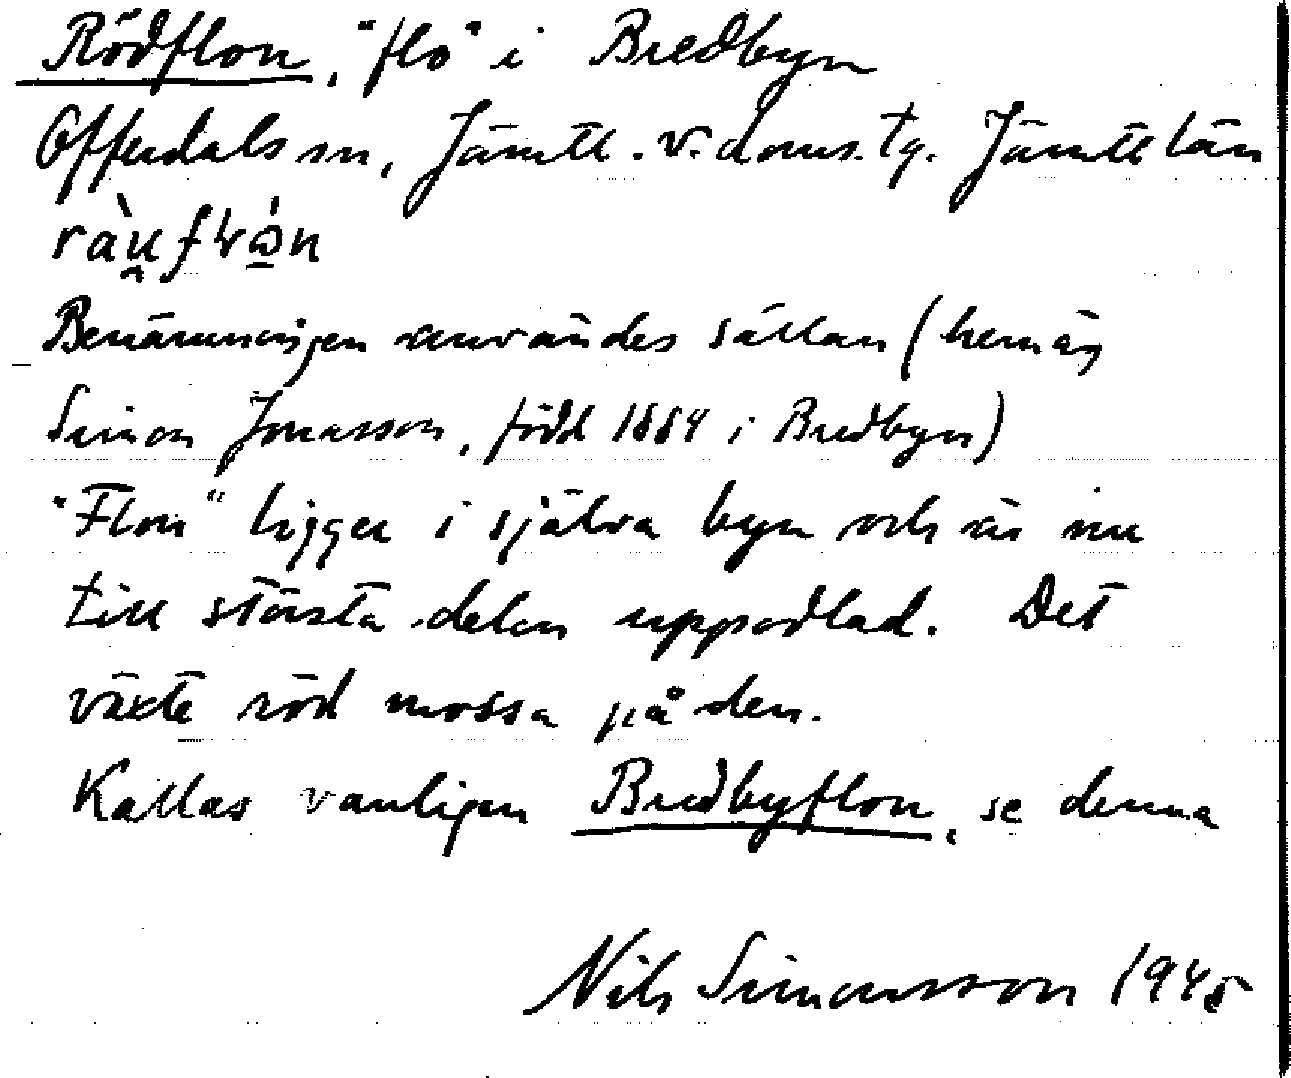 Rödflon, "flo" i Bredbyn
Offerdals sn, Jämtl. v. doms. tg. Jämtl län
Benämningen användes sällan (hemäg
Simon Jonasson, född 1884 i Bredbyn)
"Flon" ligger i själva byn och är nu
till största delen uppodlad. Det
växte röd mossa på den.
Kallas vanligen Bredbyflon, se denna
Nils Simonsson 1945